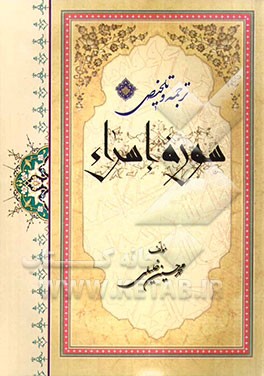 ترجمه و تلخیص
سورهٔ إسراء
مؤلف
محمد حسین
WWW.KETAB.IR